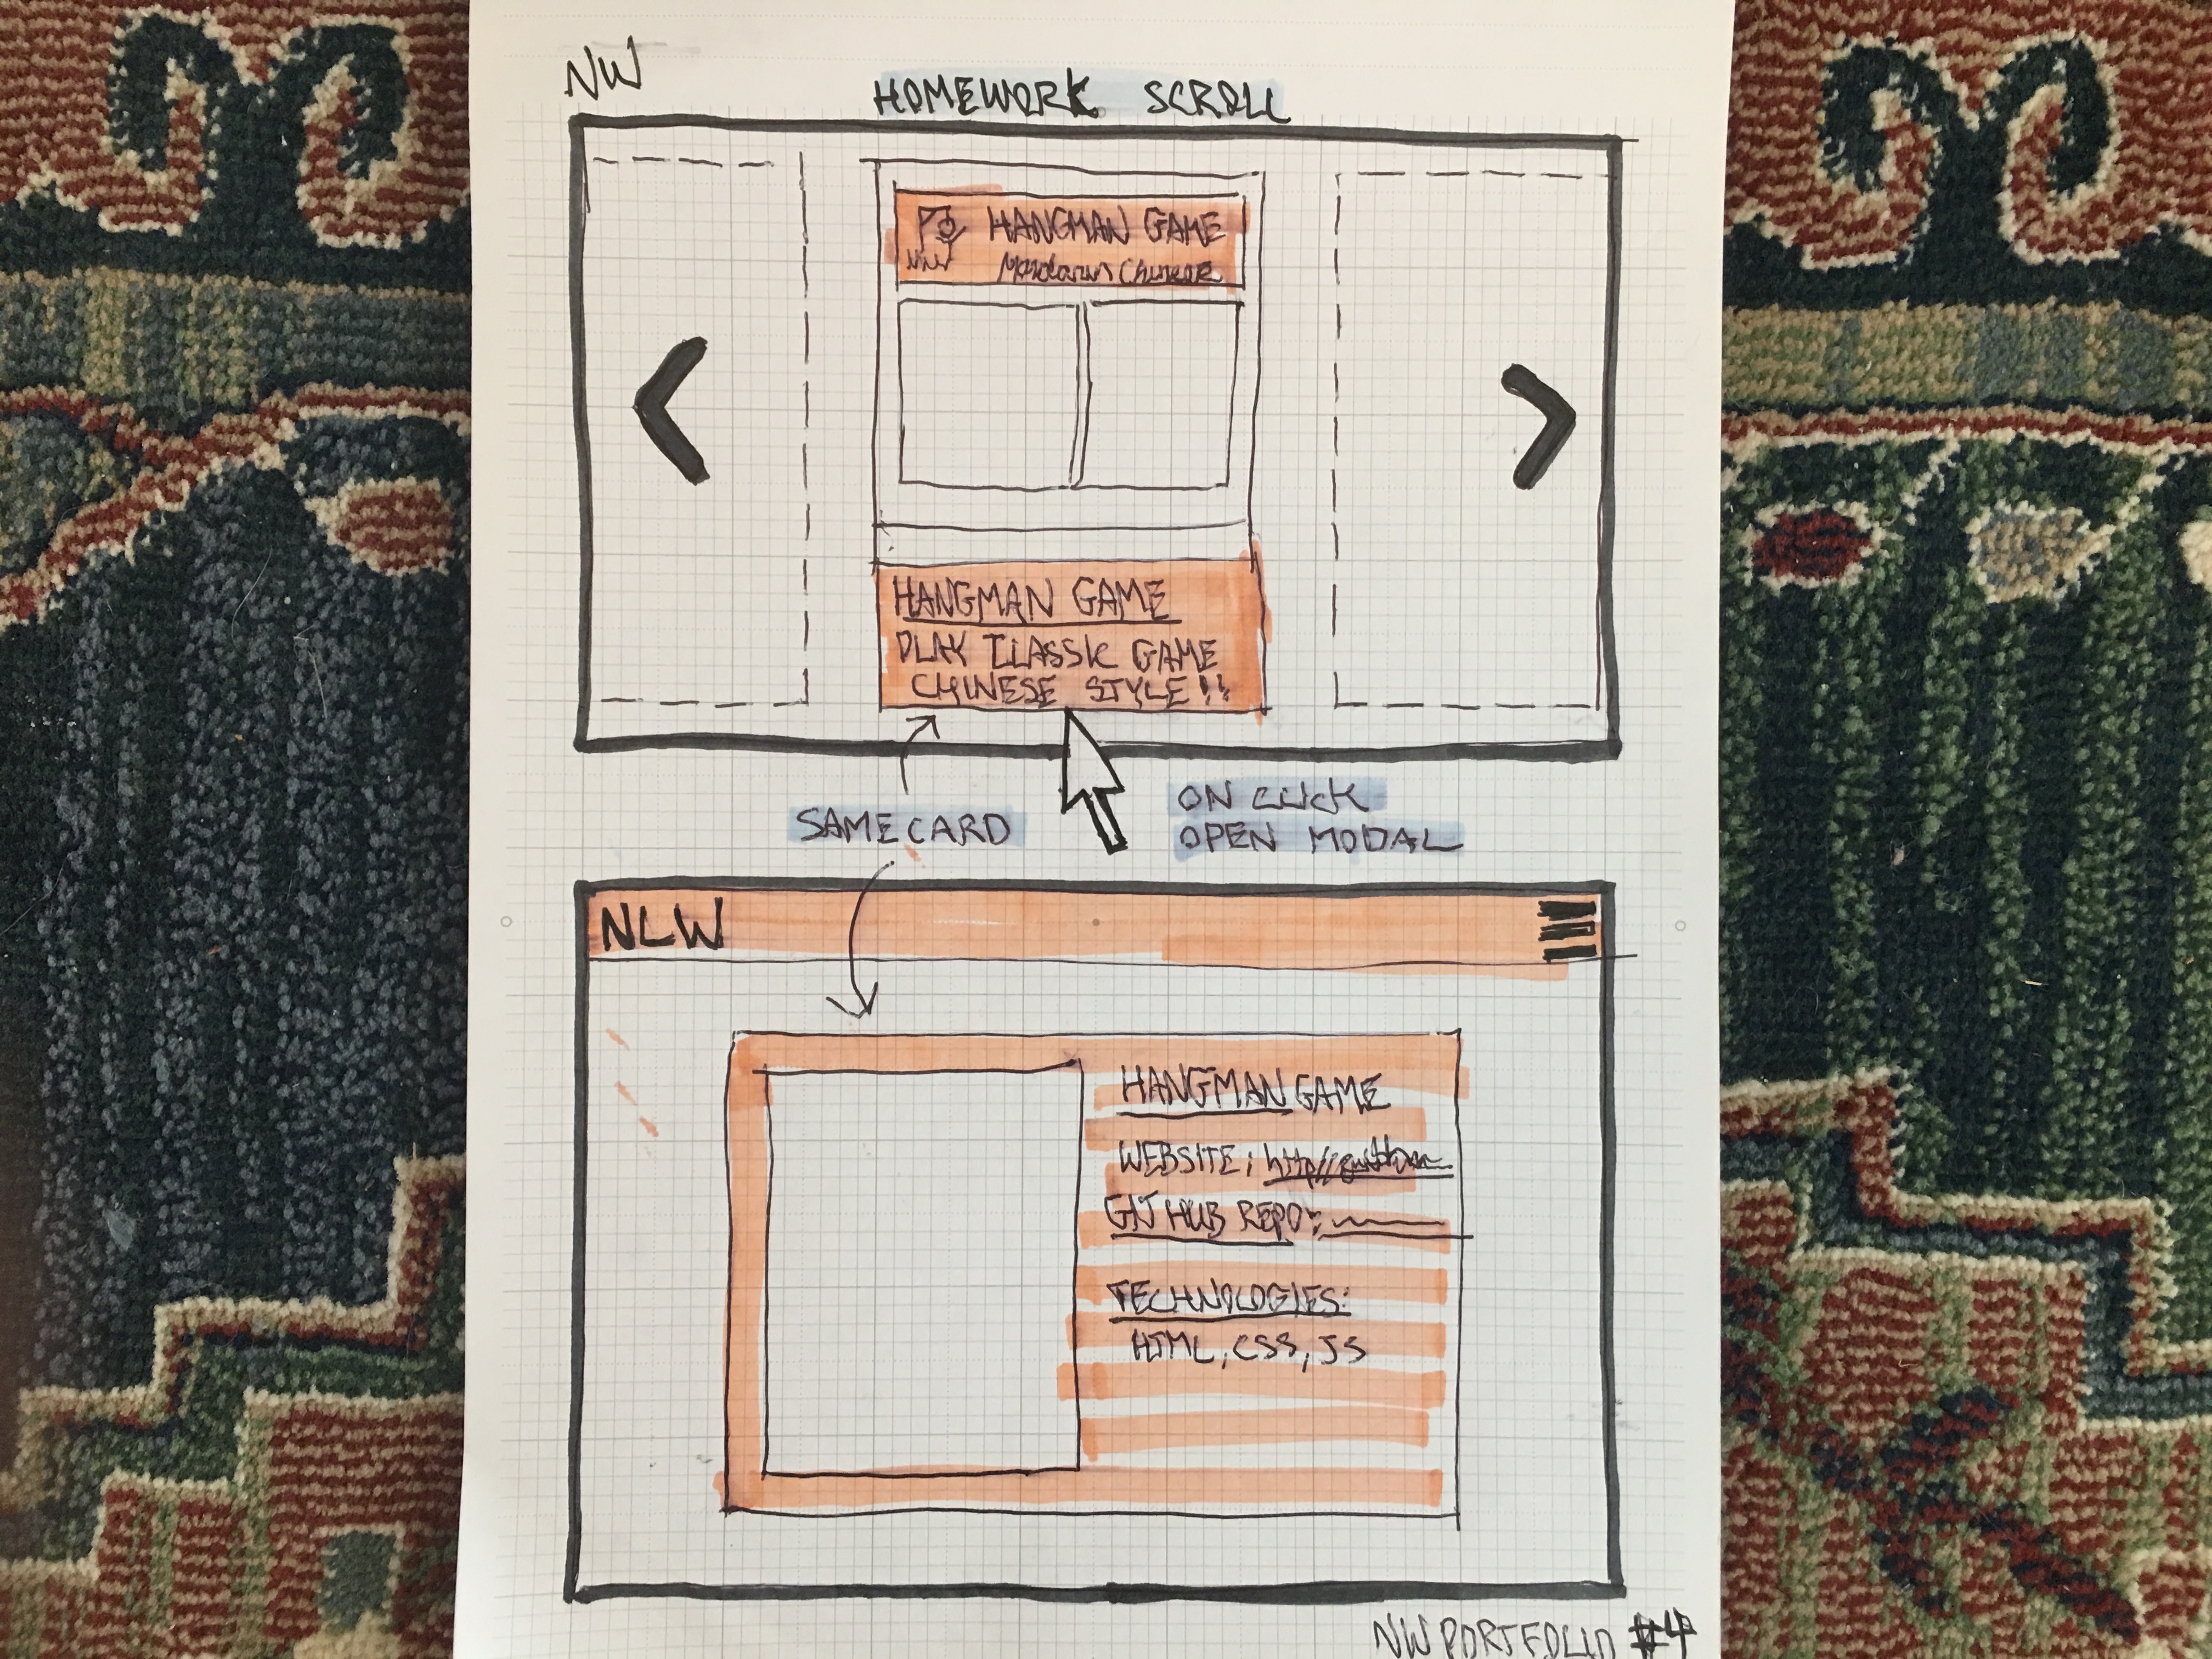 NW
HOMEWORK SCROLL
HANGMAN GAME
Mandarin Chinese
HANGMAN GAME
PLAY CLASSIC GAME
CHINESE STYLE!!
SAME CARD
ON CLICK
OPEN MODAL
NLW
HANGMAN GAME
WEBSITE: http://
GIT HUB REPO:
TECHNOLOGIES:
HTML, CSS, JS
NW PORTFOLIO #4